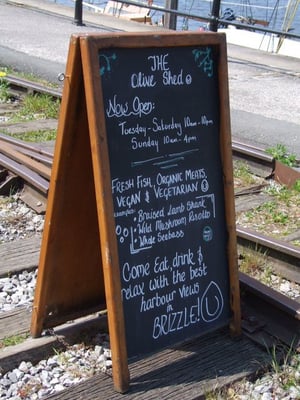 THE
Olive Shed
Now Open:
Tuesday - Saturday 10am - 10pm
Sunday 10am - 4pm
FRESH FISH, ORGANIC MEATS,
VEGAN & VEGETARIAN
examples:
• Braised Lamb Shank
• Wild Mushroom Risotto
• Whole Seabass
Come Eat, drink &
relax with the best
harbour views
in
BRIZZLE!